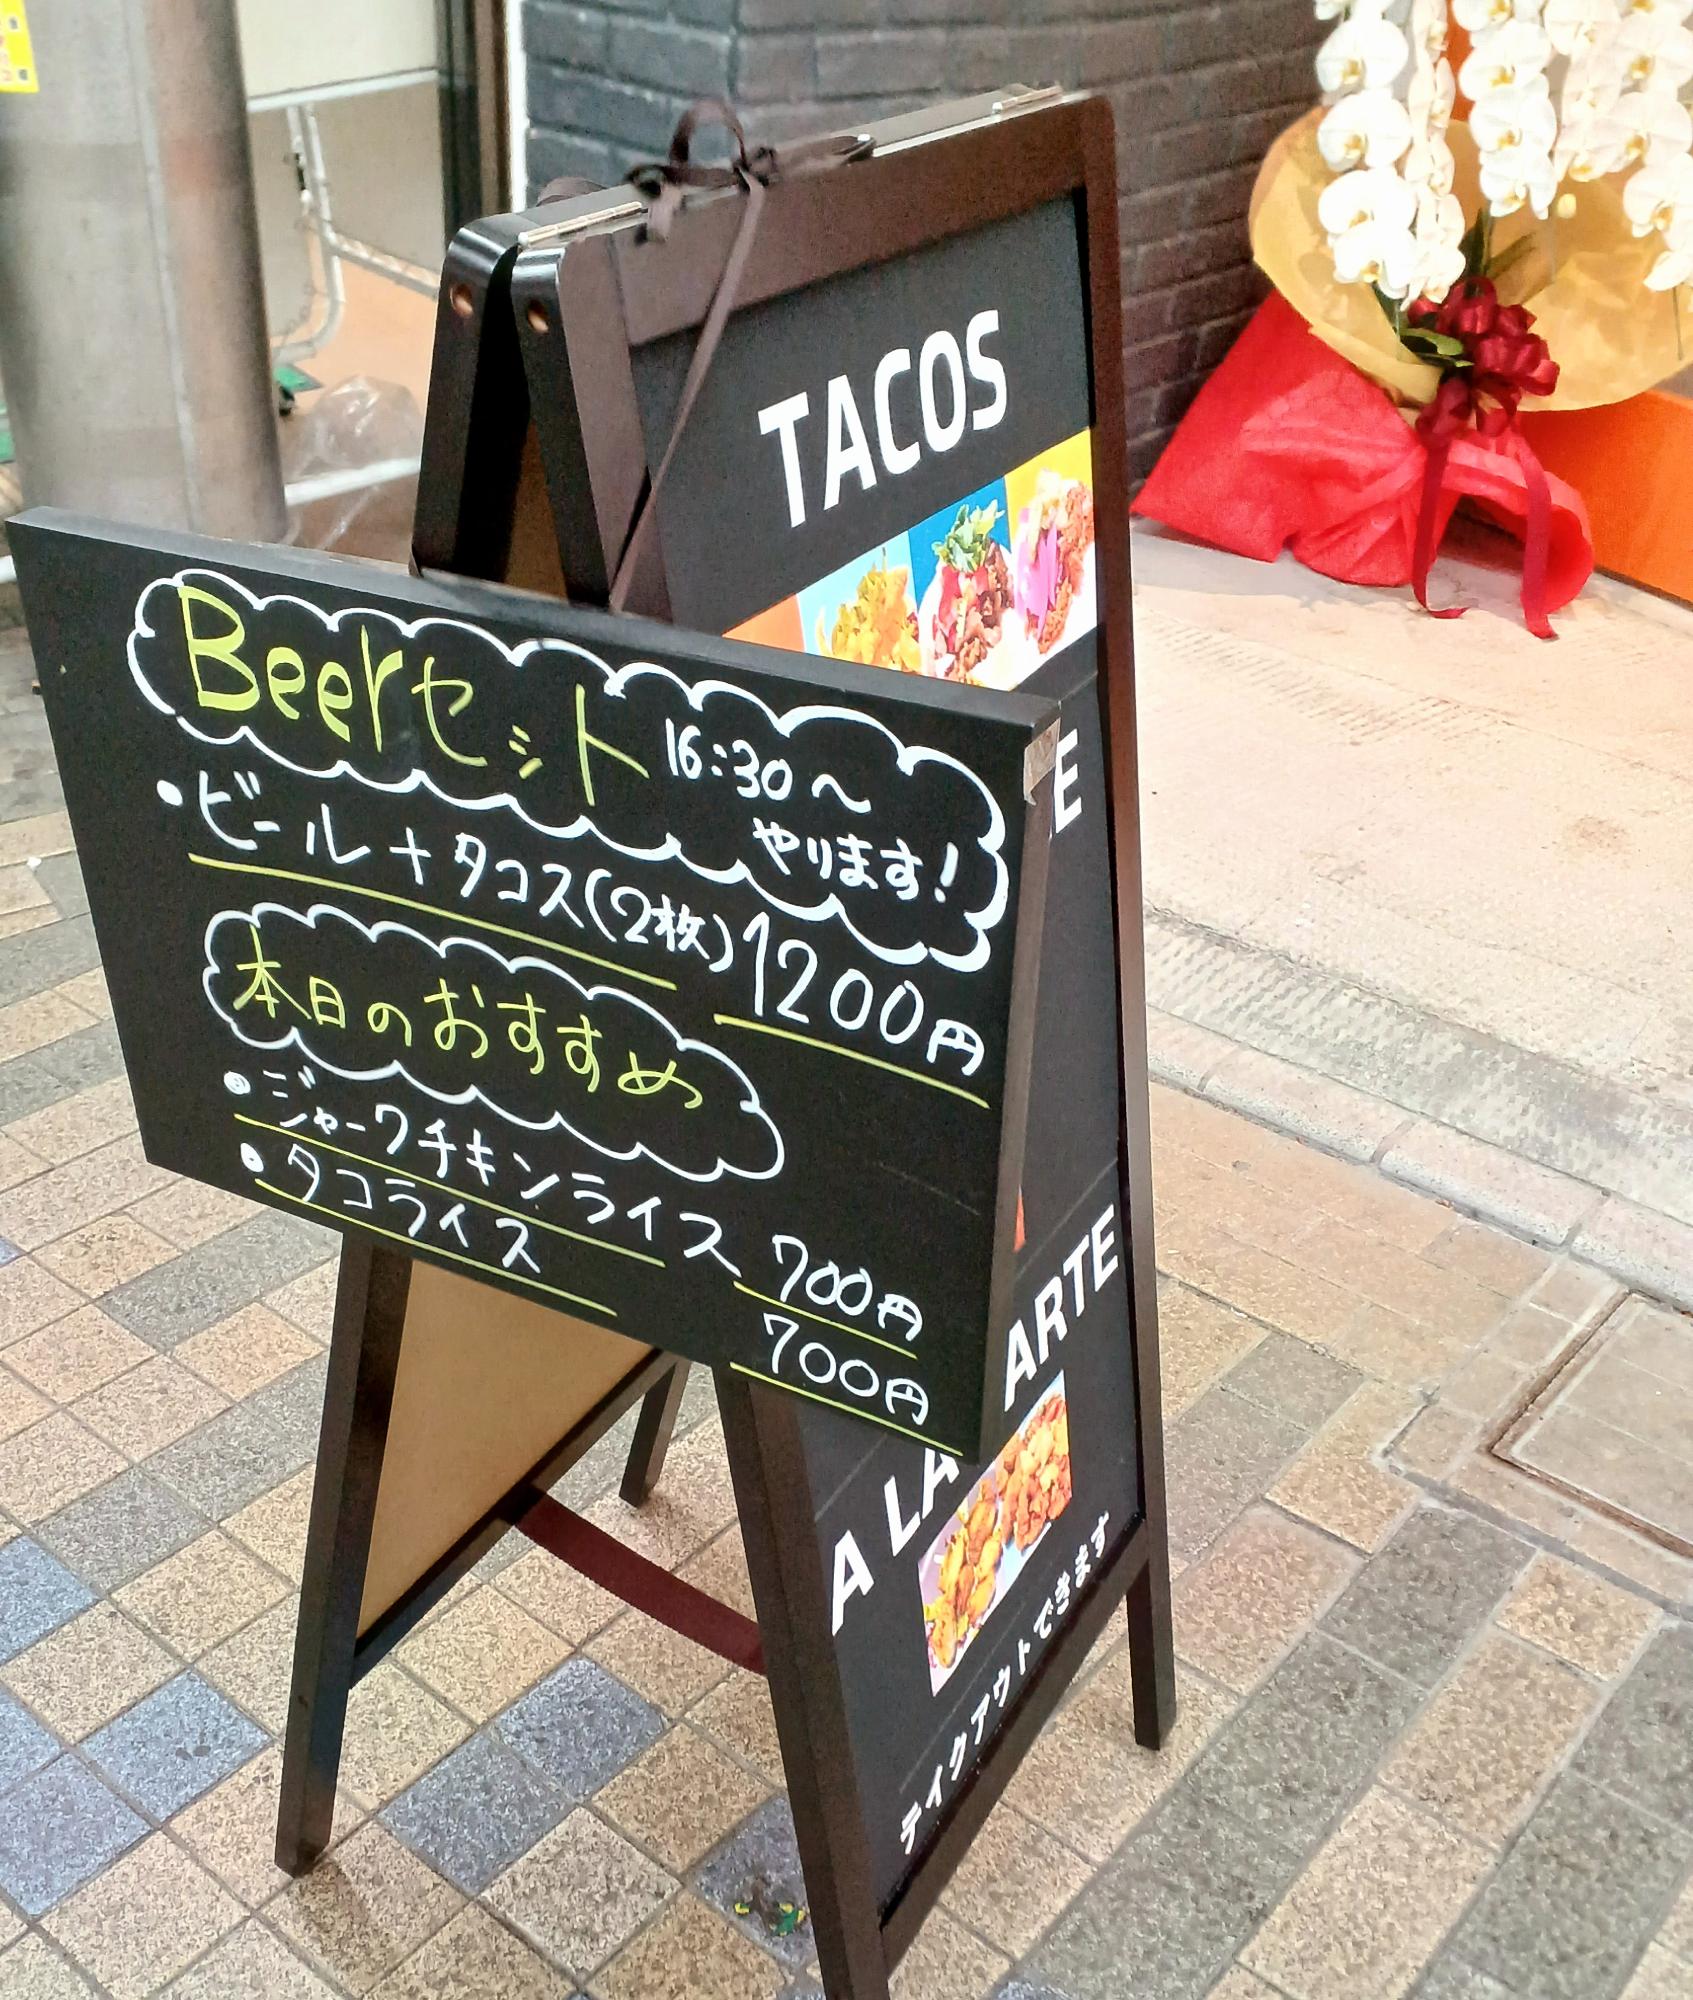 TACOS
Beerセット 16:30～
やります!
・ビール+タコス(2枚) 1200円
本日のおすすめ
・ジャークチキンライス 700円
・タコライス 700円
A LA
ARTE
テイクアウトできます